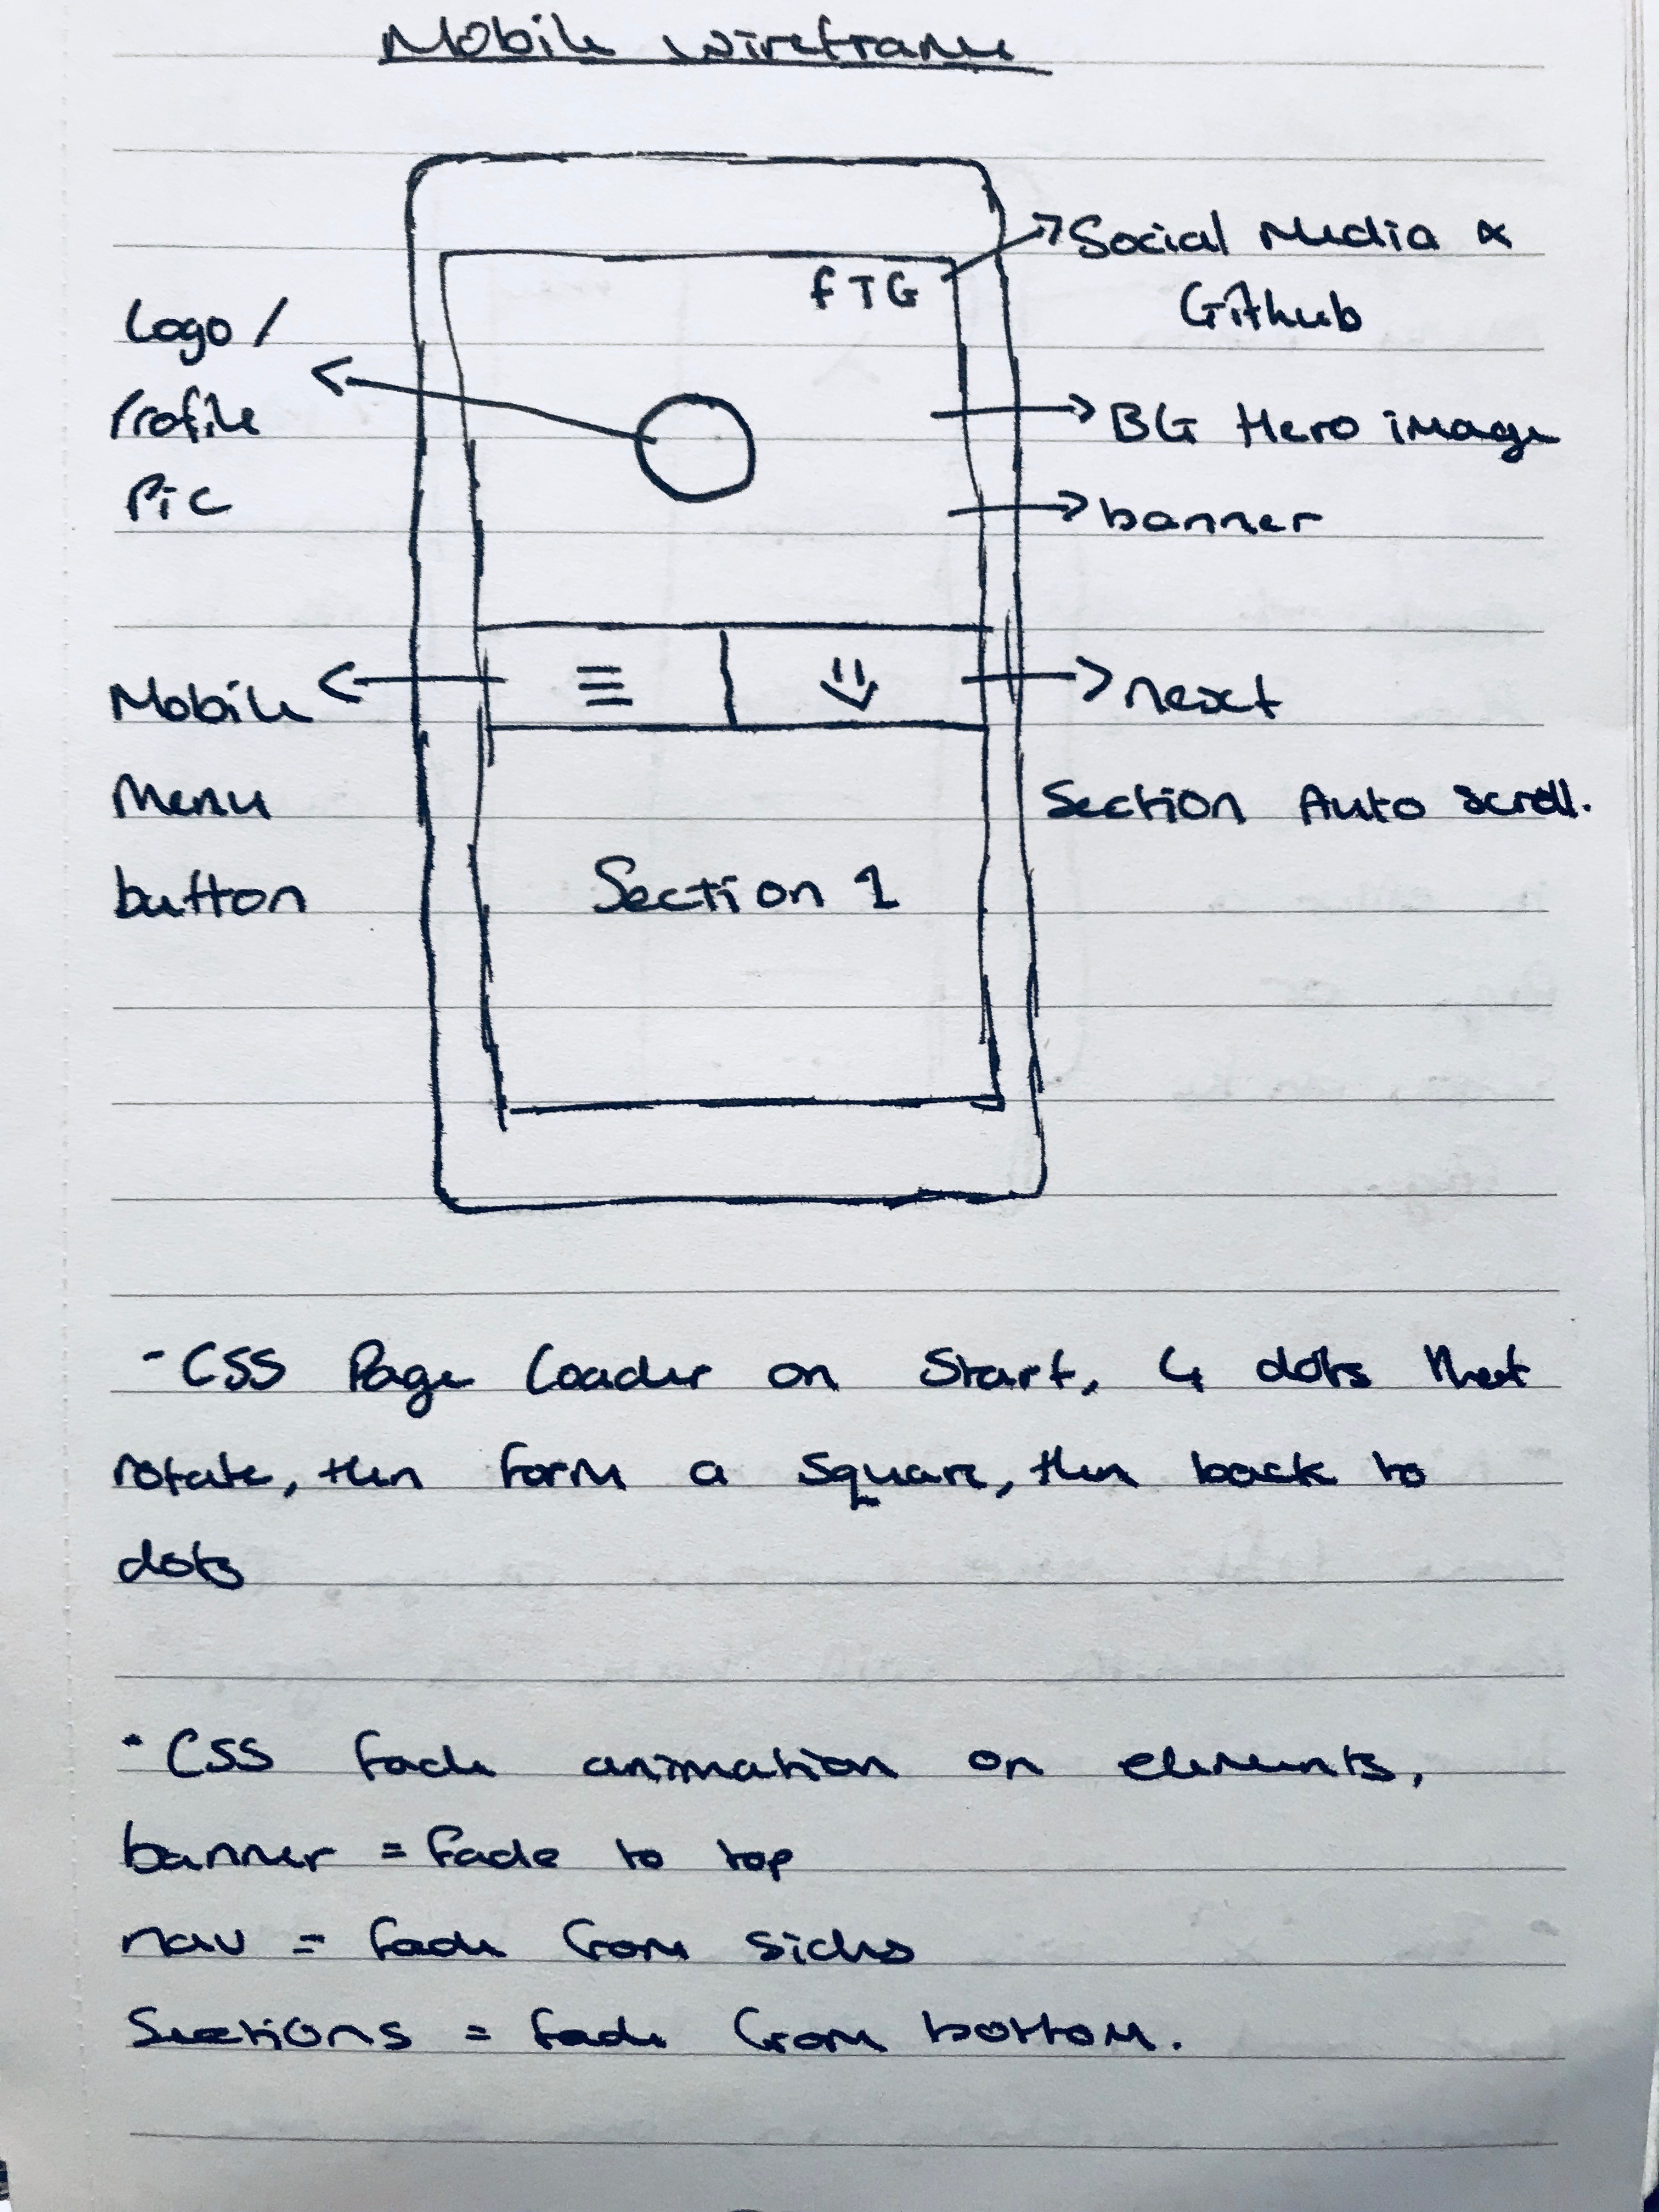 Mobile wireframe
fTG
Social Media &
Github
Logo /
Profile
Pic
BG Hero image
banner
Mobile
Menu
button
next
Section Auto scroll.
Section 1
- CSS Page Loader on Start, 4 dots that
rotate, then form a square, then back to
dots
- CSS fade animation on elements,
banner = fade to top
nav = fade from sides
Sections = fade from bottom.